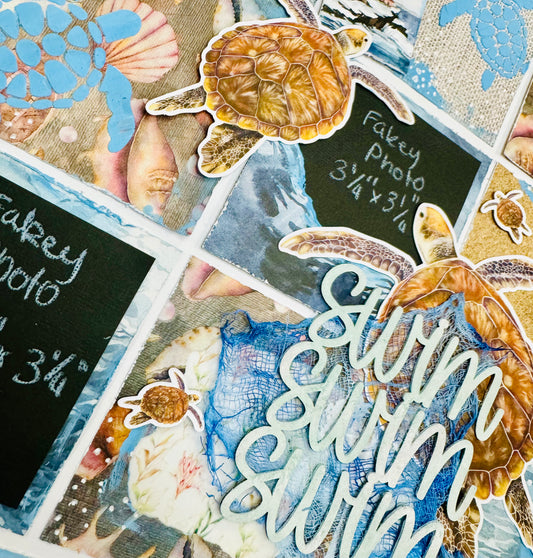 Fakey
Photo
3 1/4" x 3 1/4
Fakey
Photo
x 3 1/4"
swim
swim
swim